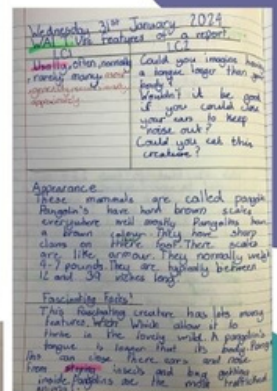 Wednesday 31st January 2024
WALT: Use features of a report.
LC1
LC2
Usually, often, normally
rarely, many, most
generally
approximately
Could you imagine having
a tongue longer than your
body?
Wouldn't it be good
if you could close
your ears to keep
noise out?
Could you eat this
creature?
Appearance
These mammals are called pangolin
Pangolin's have hard brown scales
everywhere well mostly. Pangolins have
a brown colour. They have sharp
claws on there feet. There scales
are like armour. They normally weigh
4-7 pounds. They are typically between
12 and 39 inches long.
Fascinating Facts!
This fascinating creature has lots many
features, which allow it to
thrive in the lovely wild. A pangolin's
tongue is longer that its body. Pango
lins can close there ears and nose
from insects and bug getting
inside. Pangolins are the most trafficked